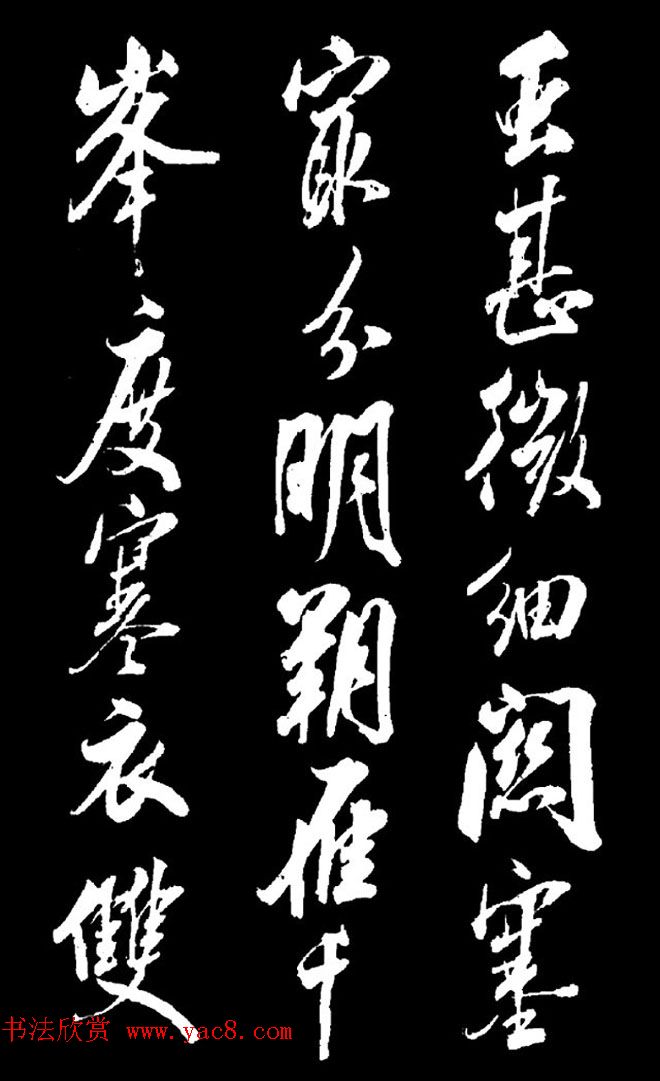 至甚微細關塞
最分明朔雁千
峯度寒衣雙
书法欣赏 www.yac8.com